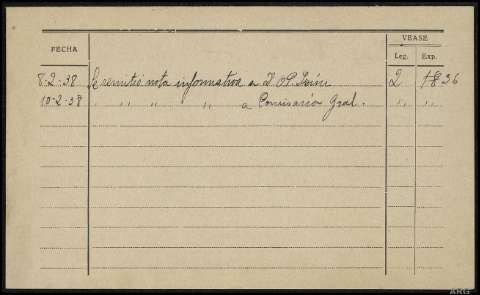 FECHA
VEASE
Leg. Exp.
8-2-38 Se remitió nota informativa a J. O. P. 2 1836
10-2-38 " " " " a Comisario Gral. " "